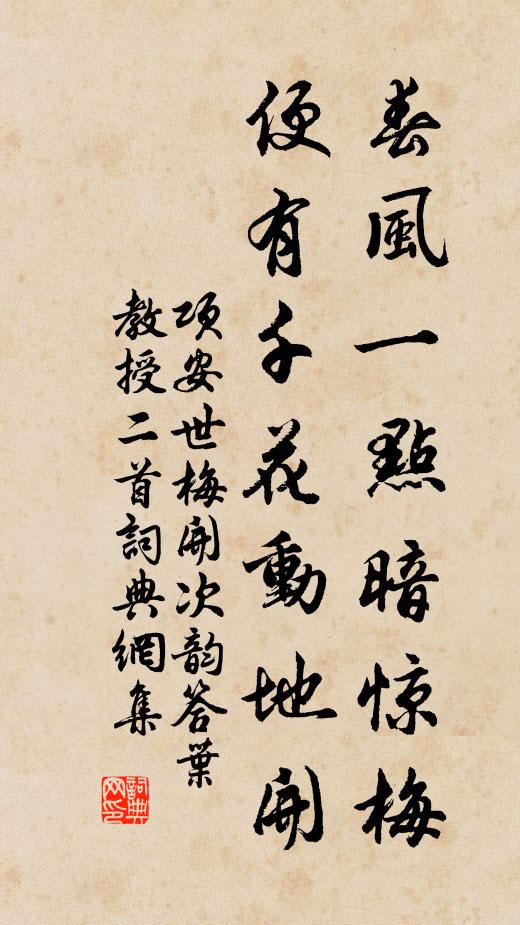 春風一點暗惊梅
便有千花動地開
項安世梅開次韵答葉
教授二首詞典網集
詞典
网印